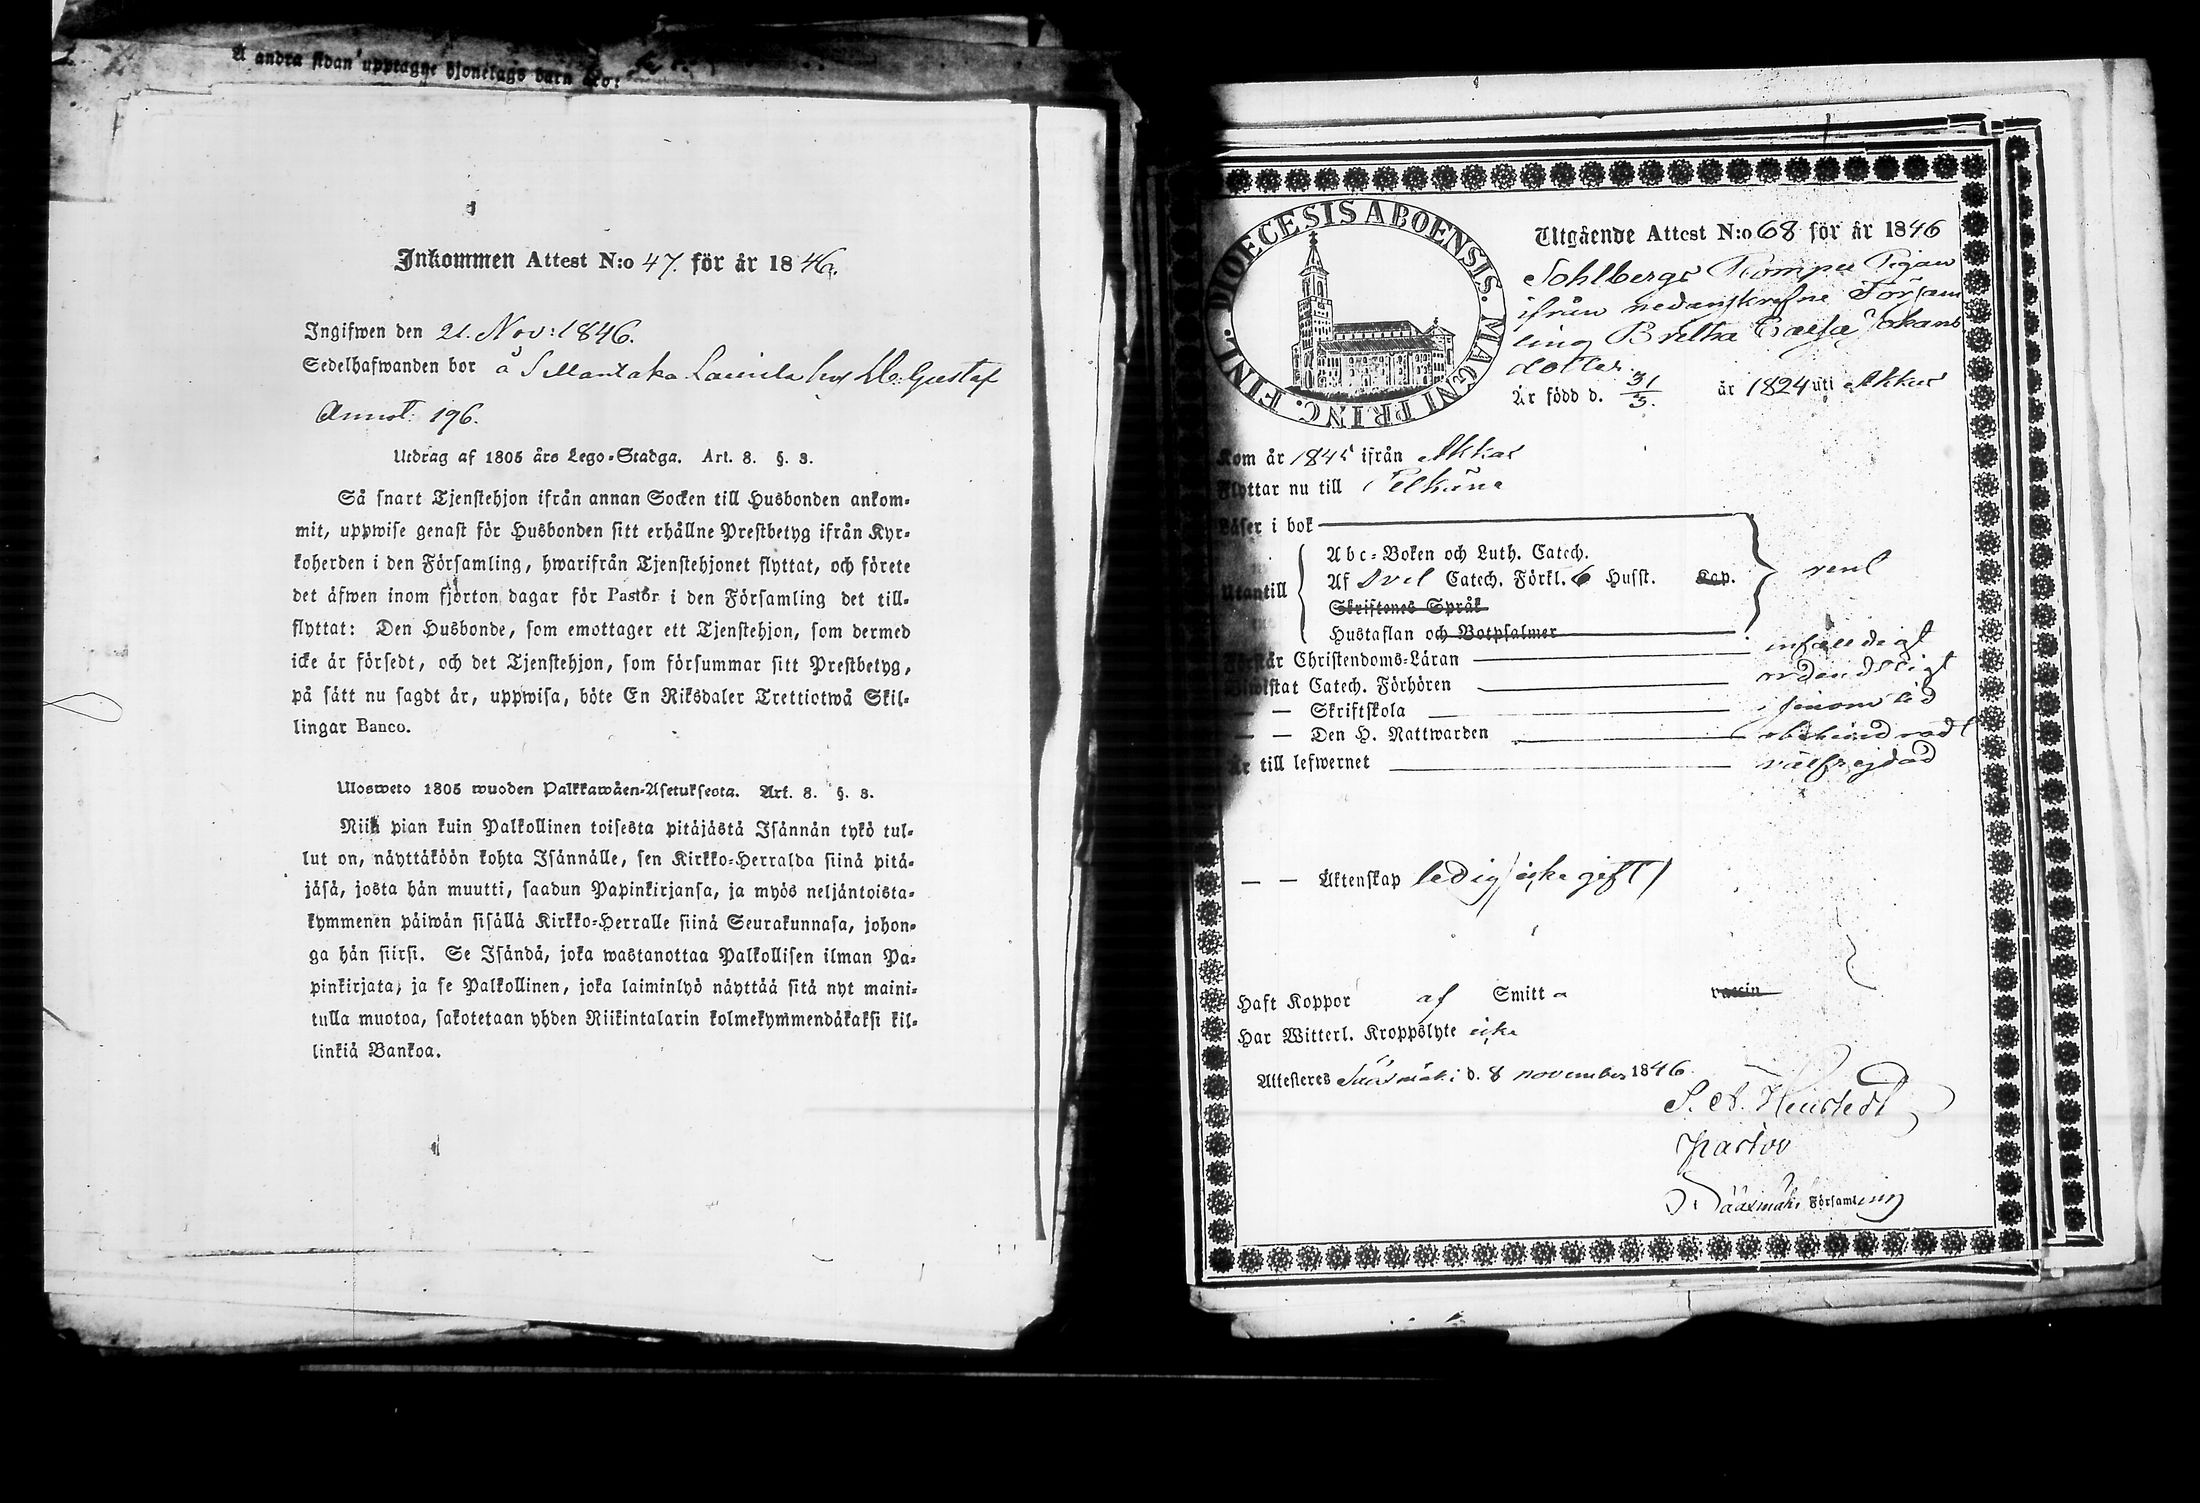 Å andra sidan upptagne hjonelags barn äro:
Inkommen Attest N:o 47. för år 1846.
Ingifwen den 21. Nov: 1846.
Sedelhafwanden bor å Sillantaka Laurila hos Gustaf
Annot. 196.
Utdrag af 1805 års Lego-Stadga. Art. 8. §. 3.
Så snart Tjenstehjon ifrån annan Socken till Husbonden ankom-
mit, uppwise genast för Husbonden sitt erhållne Prestbetyg ifrån Kyr-
koherden i den Församling, hwarifrån Tjenstehjonet flyttat, och förete
det äfwen inom fjorton dagar för Pastor i den Församling det till-
flyttat: Den Husbonde, som emottager ett Tjenstehjon, som dermed
icke är försedt, och det Tjenstehjon, som försummar sitt Prestbetyg,
på sätt nu sagdt är, uppwisa, böte En Riksdaler Trettiotwå Skil-
lingar Banco.
Ulosweto 1805 wuoden Palkkawäen-Asetuksesta. Art. 8. §. 3.
Niin pian kuin Palkollinen toisesta pitäjästä Isännän tykö tul-
lut on, näyttäköön kohta Isännälle, sen Kirkko-Herralda siinä pitä-
jäsä, josta hän muutti, saadun Papinkirjansa, ja myös neljäntoista-
kymmenen päiwän sisällä Kirkko-Herralle siinä Seurakunnasa, johon-
ga hän siirsi. Se Isändä, joka wastanottaa Palkollisen ilman Pa-
pinkirjata, ja se Palkollinen, joka laiminlyö näyttää sitä nyt maini-
tulla muotoa, sakotetaan yhden Riikintalarin kolmekymmendäkaksi kil-
linkiä Bankoa.
DIOECESIS ABOENSIS. MAGNI PRINC. FINL.
Utgående Attest N:o 68 för år 1846
Sohlbergs Kompee Pigan
ifrån nedanskrefne Försam
ling Bretha Caisa Johans
dotter
Är född d. 31/3. år 1824 uti Akkas
Kom år 1845 ifrån Akkas
Flyttar nu till Pelkäne
Läser i bok
Abc-Boken och Luth. Catech.
Utantill Af Svel Catech. Förkl. 6 Husst. Kap. rent
Skriftenes Språk
Hustaflan och Botpsalmer
Förstår Christendoms-Läran enfaldeligt
Biwistat Catech. Förhören ordendtligt
— — Skriftskola i sinom tid
— — Den H. Nattwarden obehindradt
Är till lefwernet välfrejdad
— — Äktenskap ledig (icke gift)
Haft Koppor af Smitta vaccin
Har Witterl. Kroppslyte icke
Attesteres Sääxmäki d. 8 november 1846
S. A. Heurstedt
Pastor
i Sääxmäki Församling